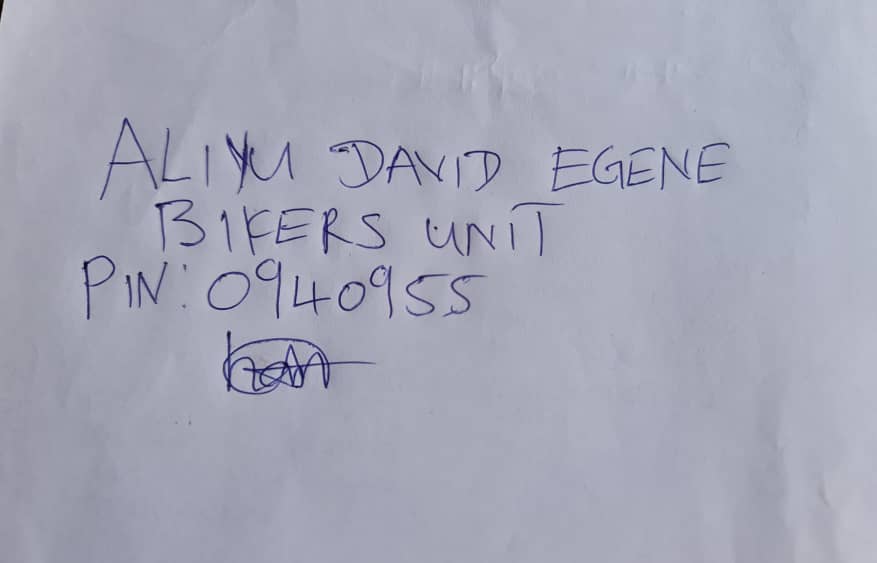 ALIYU DAVID EGENE
BIKERS UNIT
PIN: 0940955